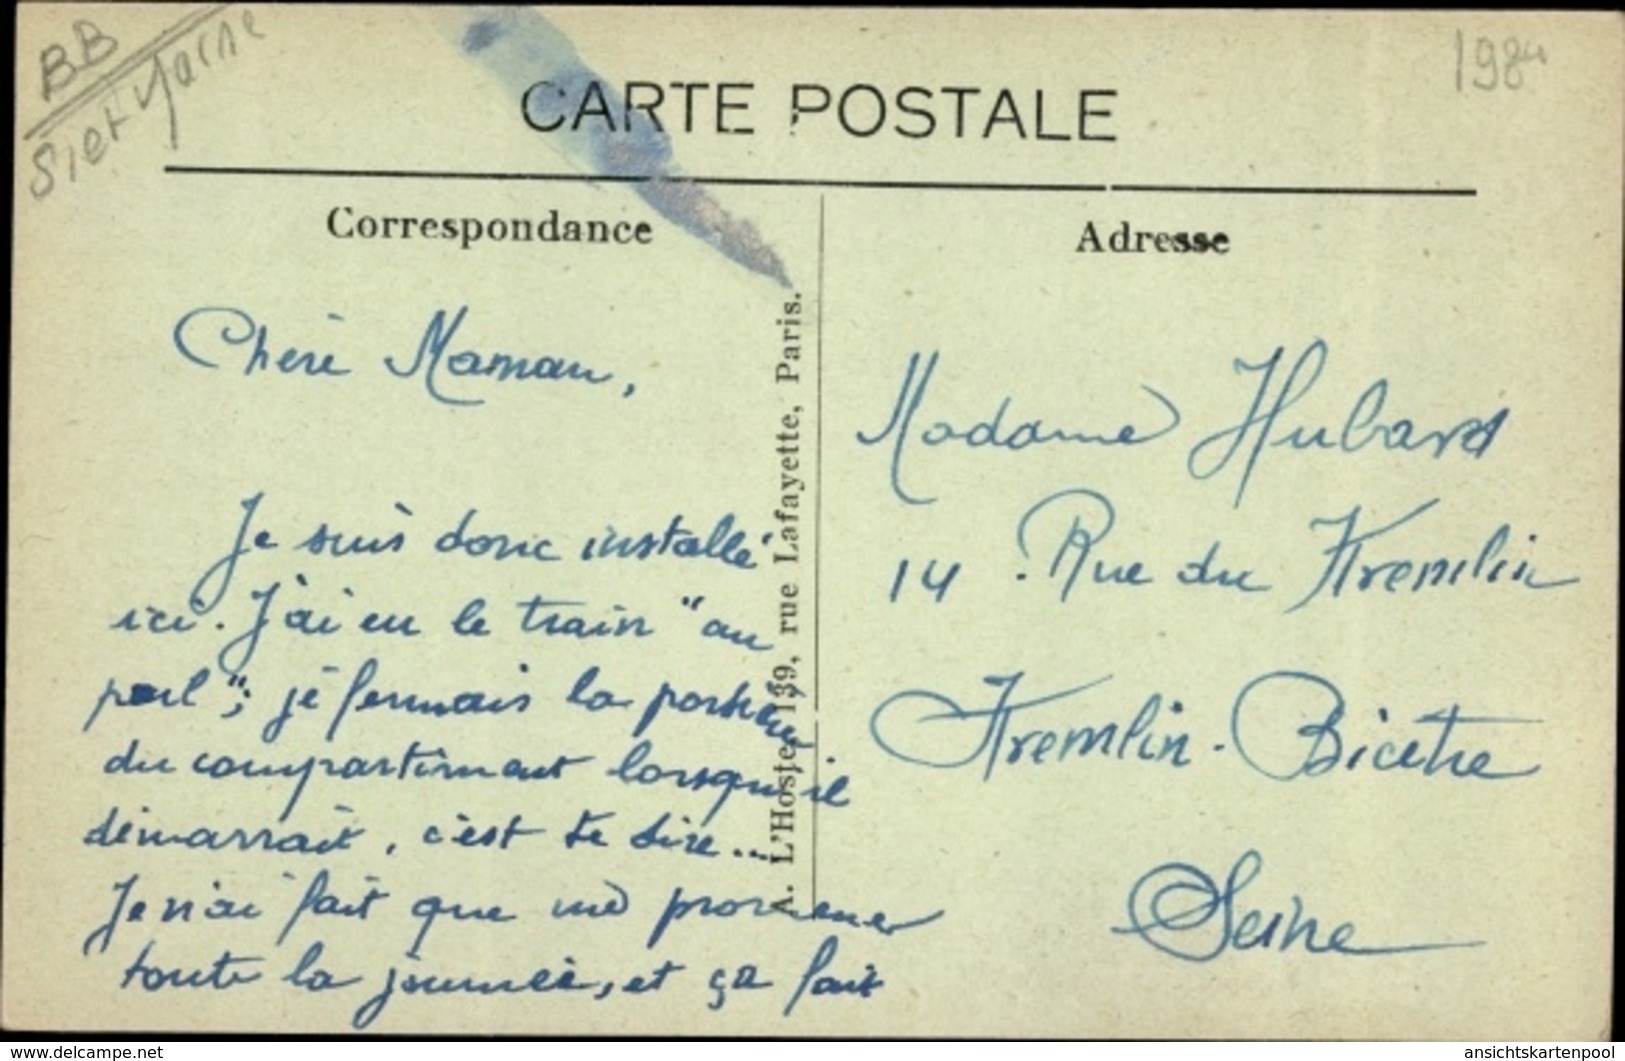 BB
S et Marne
1984
CARTE POSTALE
Correspondance
Adresse
Chère Maman,
Je suis donc installé
ici. J'ai eu le train "au
poil"; je fermais la portière
du compartiment lorsqu'il
démarrait, c'est te dire...
Je n'ai fait que me promener
toute la journée, et ça fait
A. L'Hoste, 139, rue Lafayette, Paris.
Madame Hubard
14. Rue du Kremlin
Kremlin-Bicêtre
Seine
www.delcampe.net
ansichtskartenpool